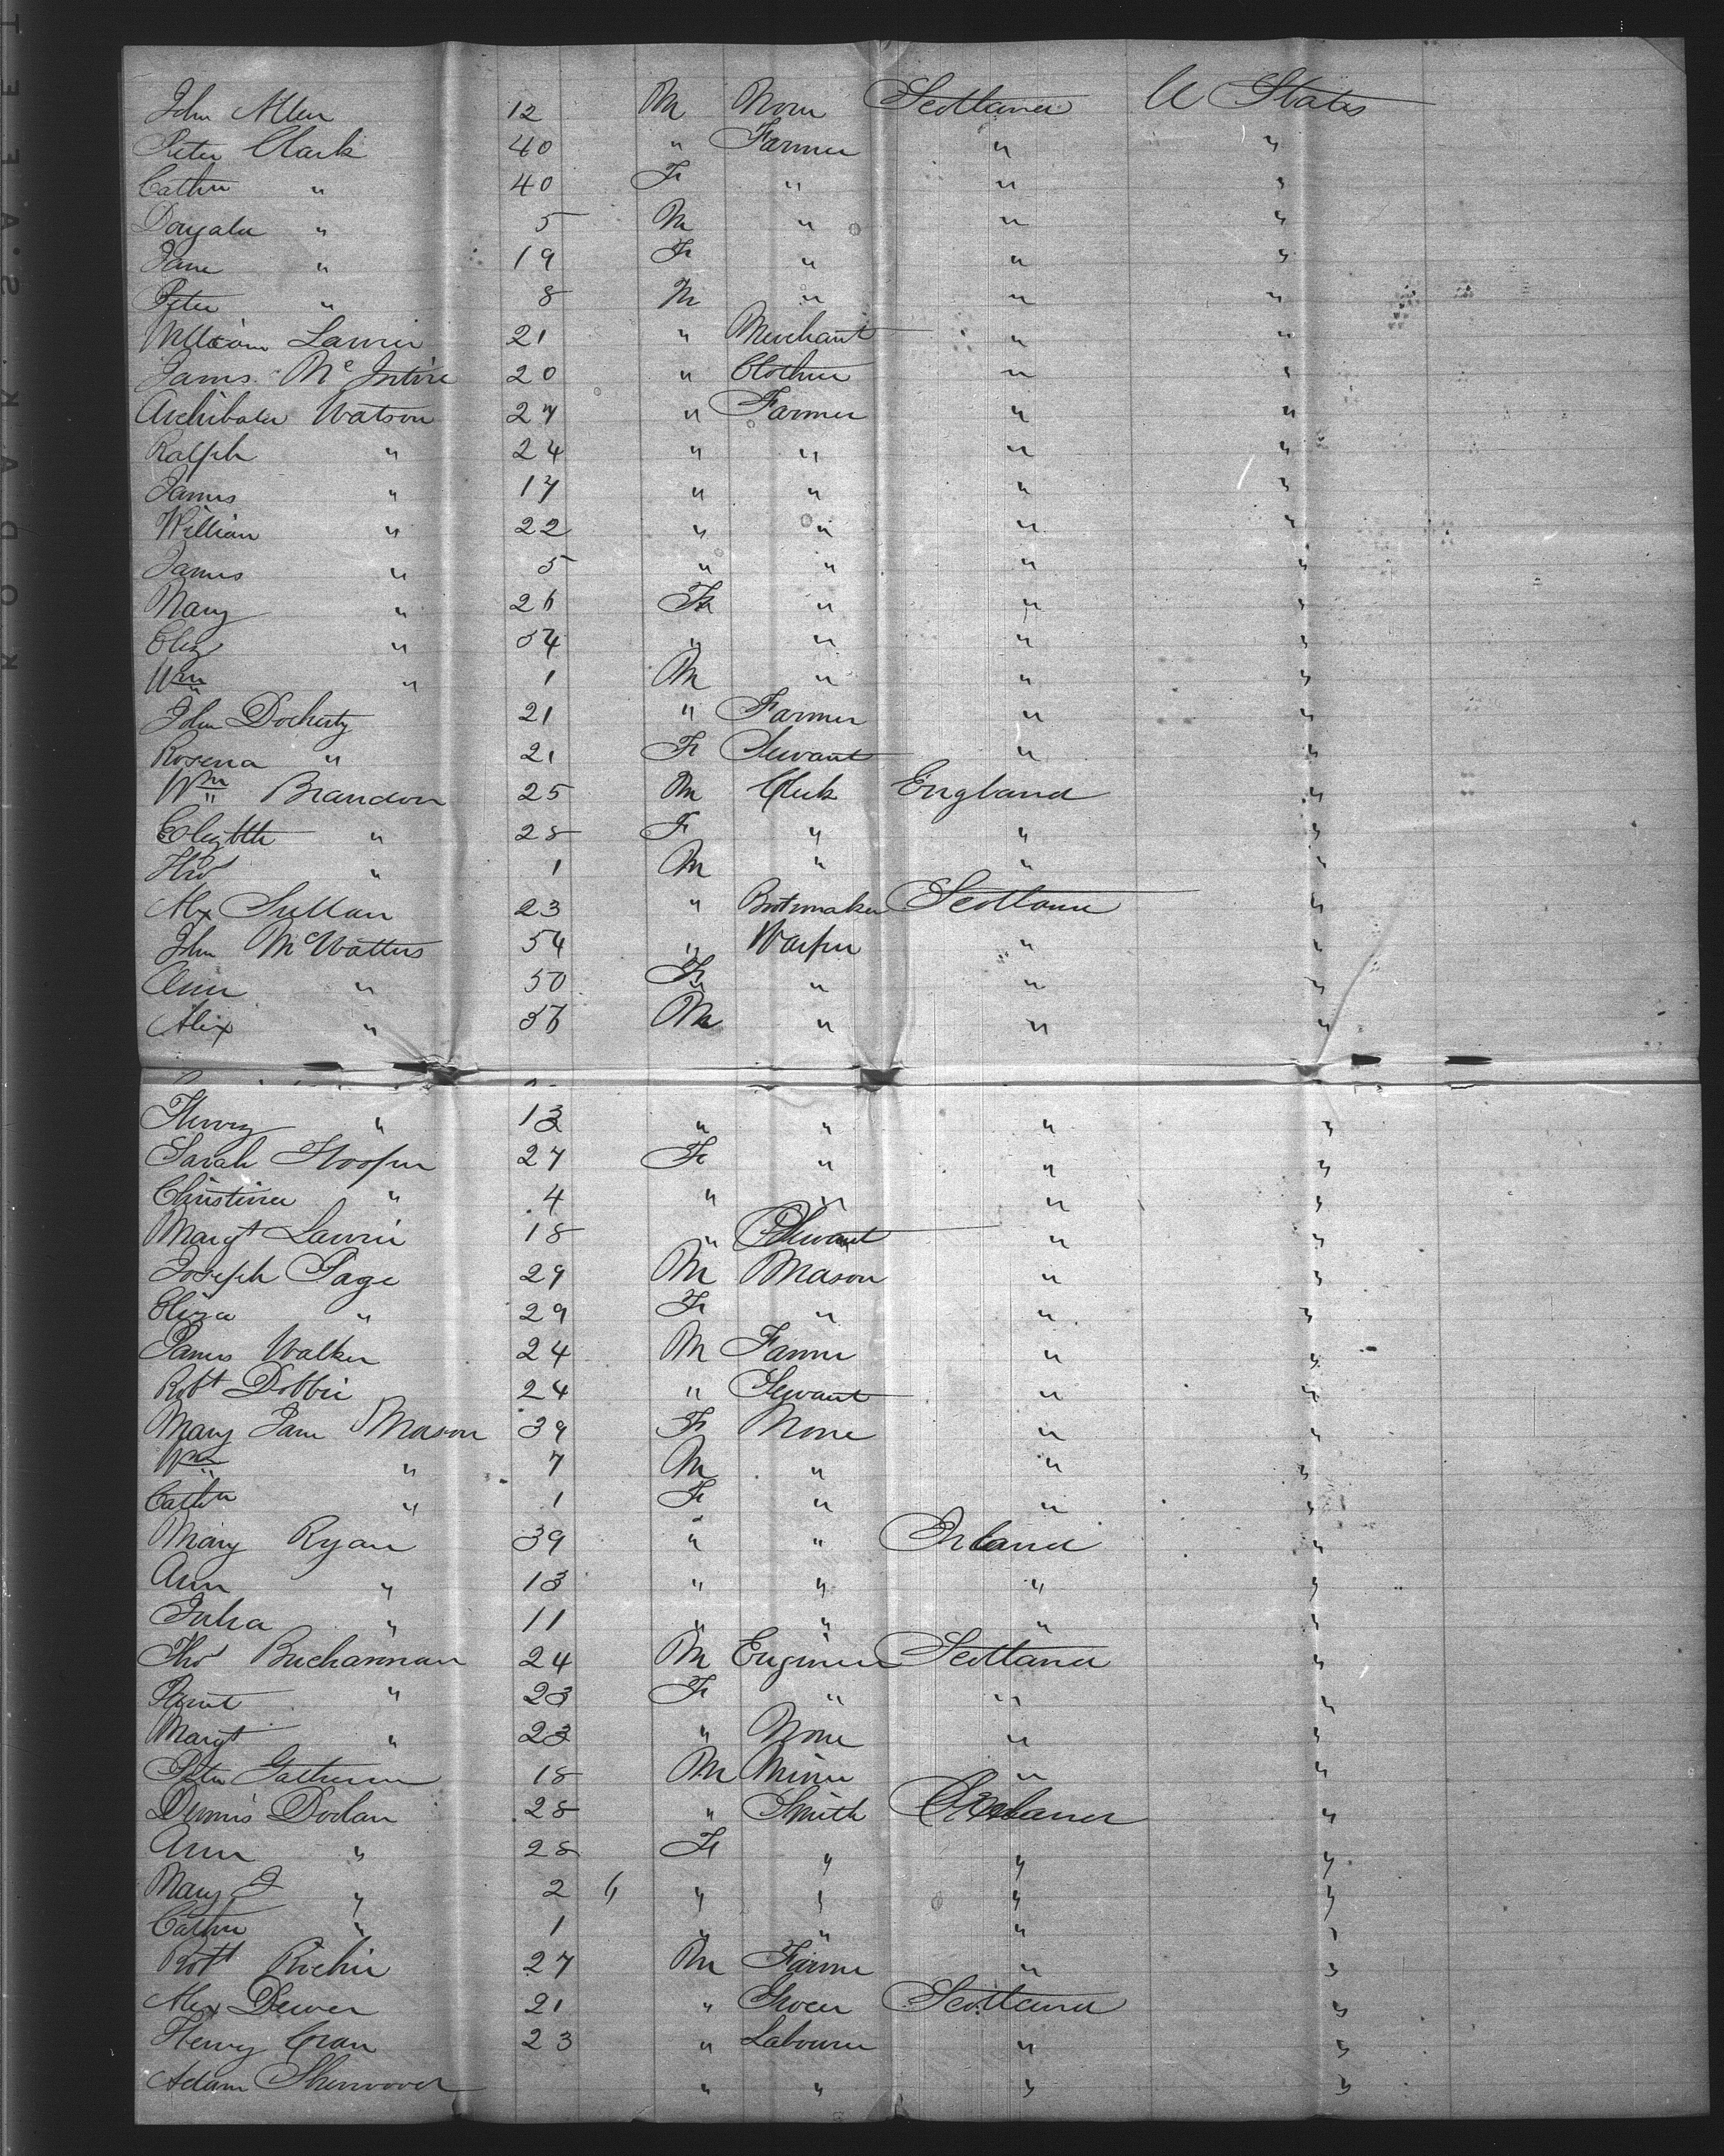 John Allen 12 M None Scotland U States
Peter Clark 40 " Farmer " "
Cathn " 40 F " " "
Dougald " 5 M " " "
Jane " 19 F " " "
Peter " 8 M " " "
William Lawrie 21 " Merchant " "
James McIntire 20 " Clothier " "
Archibald Watson 27 " Farmer " "
Ralph " 24 " " " "
James " 17 " " " "
William " 22 " " " "
James " 5 " " " "
Mary " 26 F " " "
Eliz " 54 " " " "
Wm " 1 M " " "
John Docherty 21 " Farmer " "
Rosena " 21 F Servant " "
Wm Brandon 25 M Clerk England "
Elizbth " 28 F " " "
Thos " 1 M " " "
Alex Sullan 23 " Bootmaker Scotland "
John McWatters 54 " Warper " "
Ann " 50 F " " "
Alix " 36 M " " "
Henry " 13 " " " "
Sarah Hooper 27 F " " "
Christina " 4 " " " "
Margt Lawrie 18 " Servant " "
Joseph Page 29 M Mason " "
Eliza " 29 F " " "
James Walker 24 M Farmer " "
Robt Dobbie 24 " Servant " "
Mary Jane Mason 39 F None " "
Wm " 7 M " " "
Cathn " 1 F " " "
Mary Ryan 39 " " Irland "
Ann " 13 " " " "
Julia " 11 " " " "
Thos Buchannan 24 M Engineer Scotland "
Janet " 23 F " " "
Margt " 23 " None " "
Peter 18 M Miner " "
Dennis Doolan 28 " Smith "
Ann " 28 F " " "
Mary J " 2 " " " "
Cathn " 1 " " " "
Robt Richie 27 M Farmer " "
Alex Dewer 21 " Grocer Scotland "
Henry Cran 23 " Labourer " "
Adam Sherwood " " " "